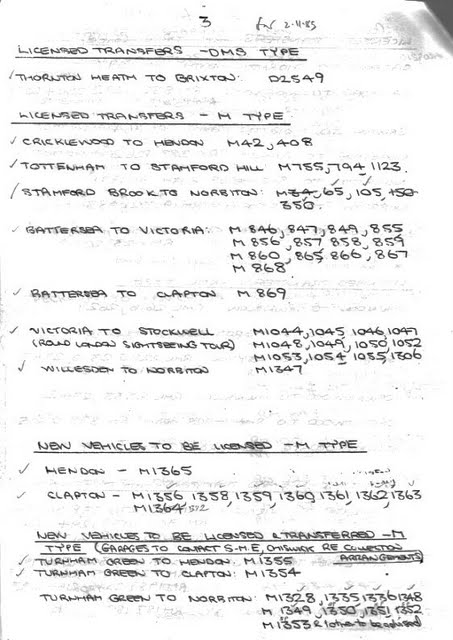 3 for 2-11-83
LICENSED TRANSFERS - DMS TYPE
THORNTON HEATH TO BRIXTON: D2549
LICENSED TRANSFERS - M TYPE
CRICKLEWOOD TO HENDON M42, 408
TOTTENHAM TO STAMFORD HILL M755, 794, 1123
STAMFORD BROOK TO NORBITON: M34, 65, 105, 150
350
BATTERSEA TO VICTORIA: M 846, 847, 849, 855
M 856, 857 858, 859
M 860, 865, 866, 867
M 868
BATTERSEA TO CLAPTON M 869
VICTORIA TO STOCKWELL M1044, 1045, 1046, 1047
(ROUND LONDON SIGHTSEEING TOUR) M1048, 1049, 1050, 1052
M1053, 1054, 1055, 1306
WILLESDEN TO NORBITON M1347
NEW VEHICLES TO BE LICENSED - M TYPE
HENDON - M1365
CLAPTON - M1356, 1358, 1359, 1360, 1361, 1362, 1363
M1364
NEW VEHICLES TO BE LICENSED & TRANSFERRED - M
TYPE (GARAGES TO CONTACT S.M.E, CHISWICK RE COLLECTION
ARRANGEMENTS)
TURNHAM GREEN TO HENDON: M1355
TURNHAM GREEN TO CLAPTON: M1354
TURNHAM GREEN TO NORBITON: M1328, 1335, 1336, 1348
M 1349, 1350, 1351, 1352
M1353 & 1 other to be advised